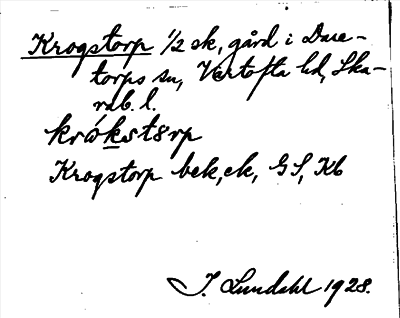 Krogstorp 1/2 sk, gård i Dare-
torps sn, Vartofta hd, Ska-
rab. l.
krókstorp
Krogstorp bek, ek, GS, Kb
J. Lundahl 1928.